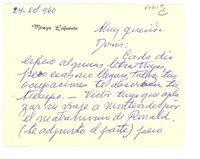 24. Oct. 960
Mireya Lafuente
Muy querida
Doris: Cada día
espero algunas letras tuyas,
pero no llegan, tus
ocupaciones te absorben tu
tiempo. - Victor tuvo que apla
zar su viaje a Montevideo por
el matrimonio de Ronald.
(te adjunto el parte) pero